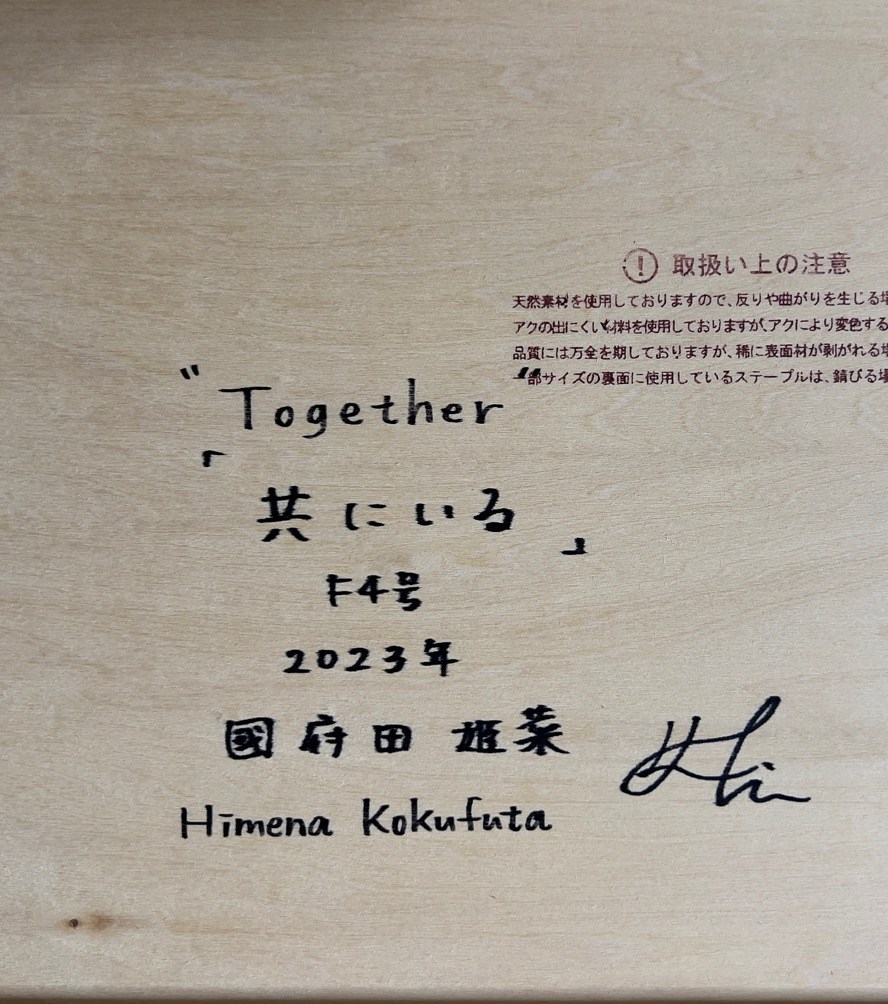 取扱い上の注意
天然素材を使用しておりますので、反りや曲がりを生じる場
アクの出にくい材料を使用しておりますが、アクにより変色する
品質には万全を期しておりますが、稀に表面材が剥がれる場
一部サイズの裏面に使用しているステープルは、錆びる場
"Together
「共にいる」
F4号
2023年
國府田 姫菜
Himena Kokufuta